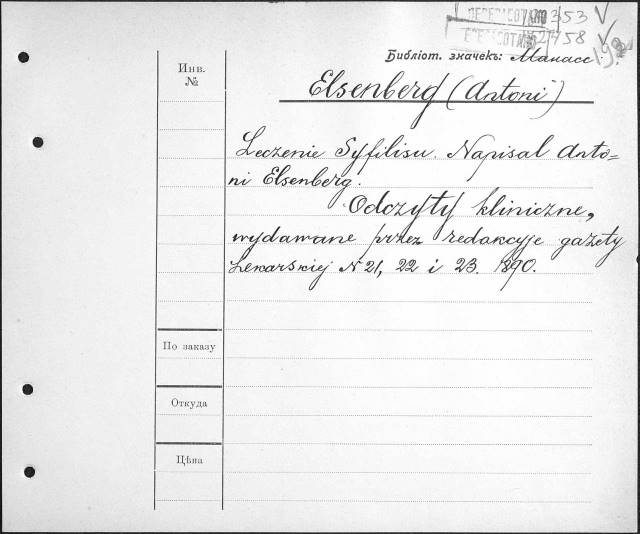 ПЕРЕРАБОТАНО 353 V
58 V
Библіот. значекъ: Манасс.
Инв.
№
Elsenberg (Antoni)
Leczenie Syfilisu. Napisal Anto=
ni Elsenberg.
Odczyty kliniczne,
wydawane przez redakcyje gazety
Lekarskiej N 21, 22 i 23. 1890.
По заказу
Откуда
Цѣна